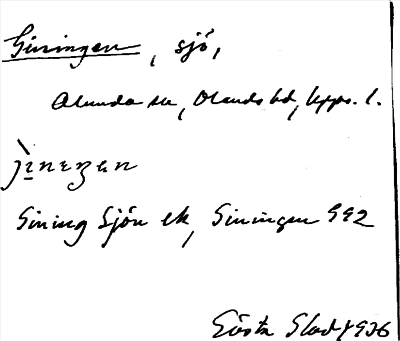 Giningen, sjö,
Alunda sn, Olands hd, Upps. l.
Gining Sjön ek, Giningen
Gösta 1936